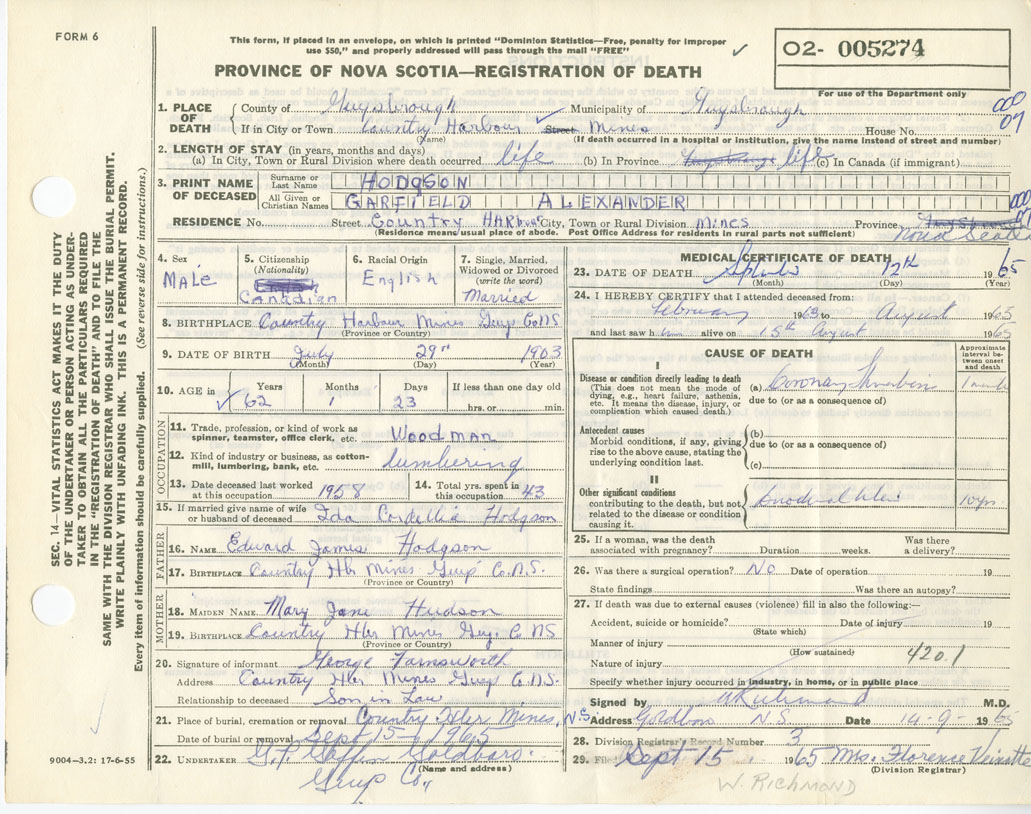 FORM 6
This form, if placed in an envelope, on which is printed "Dominion Statistics—Free, penalty for improper
use $50," and properly addressed will pass through the mail "FREE"
O2- 005274
For use of the Department only
PROVINCE OF NOVA SCOTIA—REGISTRATION OF DEATH
1. PLACE OF DEATH
County of Guysborough Municipality of Guysborough
If in City or Town Country Harbour Street Mines House No.
(Name) (If death occurred in a hospital or institution, give the name instead of street and number)
000
07
2. LENGTH OF STAY (in years, months and days)
(a) In City, Town or Rural Division where death occurred life (b) In Province life (c) In Canada (if immigrant)
3. PRINT NAME OF DECEASED
Surname or Last Name HODGSON
All Given or Christian Names GARFIELD ALEXANDER
RESIDENCE No. Street Country HARbour City, Town or Rural Division Mines Province Nova Scotia
(Residence means usual place of abode. Post Office Address for residents in rural parts not sufficient)
4. Sex
Male
5. Citizenship
(Nationality)
Canadian
6. Racial Origin
English
7. Single, Married,
Widowed or Divorced
(write the word)
Married
8. BIRTHPLACE Country Harbour Mines Guy Co NS
(Province or Country)
9. DATE OF BIRTH July 29 1903
(Month) (Day) (Year)
10. AGE in Years Months Days If less than one day old
62 1 23 hrs. or min.
OCCUPATION
11. Trade, profession, or kind of work as
spinner, teamster, office clerk, etc. Woodman
12. Kind of industry or business, as cotton-
mill, lumbering, bank, etc. lumbering
13. Date deceased last worked
at this occupation 1958
14. Total yrs. spent in
this occupation 43
15. If married give name of wife
or husband of deceased Ida Cordellia Hodgson
FATHER
16. NAME Edward James Hodgson
17. BIRTHPLACE Country Hbr Mines Guys Co. N.S.
(Province or Country)
MOTHER
18. MAIDEN NAME Mary Jane Hudson
19. BIRTHPLACE Country Hbr Mines Guy. C NS
(Province or Country)
20. Signature of informant George Farnsworth
Address Country Hbr Mines Guys Co. N.S.
Relationship to deceased Son in Law
21. Place of burial, cremation or removal Country Hbr Mines, N.S.
Date of burial or removal Sept 15 - 1965
22. UNDERTAKER Goldboro
(Name and address)
Guys Co.,
MEDICAL CERTIFICATE OF DEATH
23. DATE OF DEATH 12th 1965
(Month) (Day) (Year)
24. I HEREBY CERTIFY that I attended deceased from:
February 1963 to August 1965
and last saw him alive on 15th August 1965
CAUSE OF DEATH
Approximate interval between onset and death
I
Disease or condition directly leading to death
(This does not mean the mode of
dying, e.g., heart failure, asthenia,
etc. It means the disease, injury, or
complication which caused death.)
(a) Coronary Thrombosis
due to (or as a consequence of)
Antecedent causes
Morbid conditions, if any, giving
rise to the above cause, stating the
underlying condition last.
(b)
due to (or as a consequence of)
(c)
II
Other significant conditions
contributing to the death, but not
related to the disease or condition
causing it.
Duodenal Ulcer 10 yrs.
25. If a woman, was the death
associated with pregnancy? Duration weeks. Was there
a delivery?
26. Was there a surgical operation? No Date of operation 19
State findings Was there an autopsy?
27. If death was due to external causes (violence) fill in also the following:—
Accident, suicide or homicide? Date of injury 19
(State which)
Manner of injury
(How sustained)
420.1
Nature of injury
Specify whether injury occurred in industry, in home, or in public place
Signed by M.D.
Address Goldboro N.S. Date 14-9- 1965
28. Division Registrar's Record Number 3
29. Filed Sept 15 1965 Mrs. Florence
(Division Registrar)
W. RICHMOND
9004—3.2: 17-6-55
SEC. 14—VITAL STATISTICS ACT MAKES IT THE DUTY
OF THE UNDERTAKER OR PERSON ACTING AS UNDER-
TAKER TO OBTAIN ALL THE PARTICULARS REQUIRED
IN THE "REGISTRATION OF DEATH" AND TO FILE THE
SAME WITH THE DIVISION REGISTRAR WHO SHALL ISSUE THE BURIAL PERMIT.
WRITE PLAINLY WITH UNFADING INK. THIS IS A PERMANENT RECORD.
Every item of information should be carefully supplied. (See reverse side for instructions.)